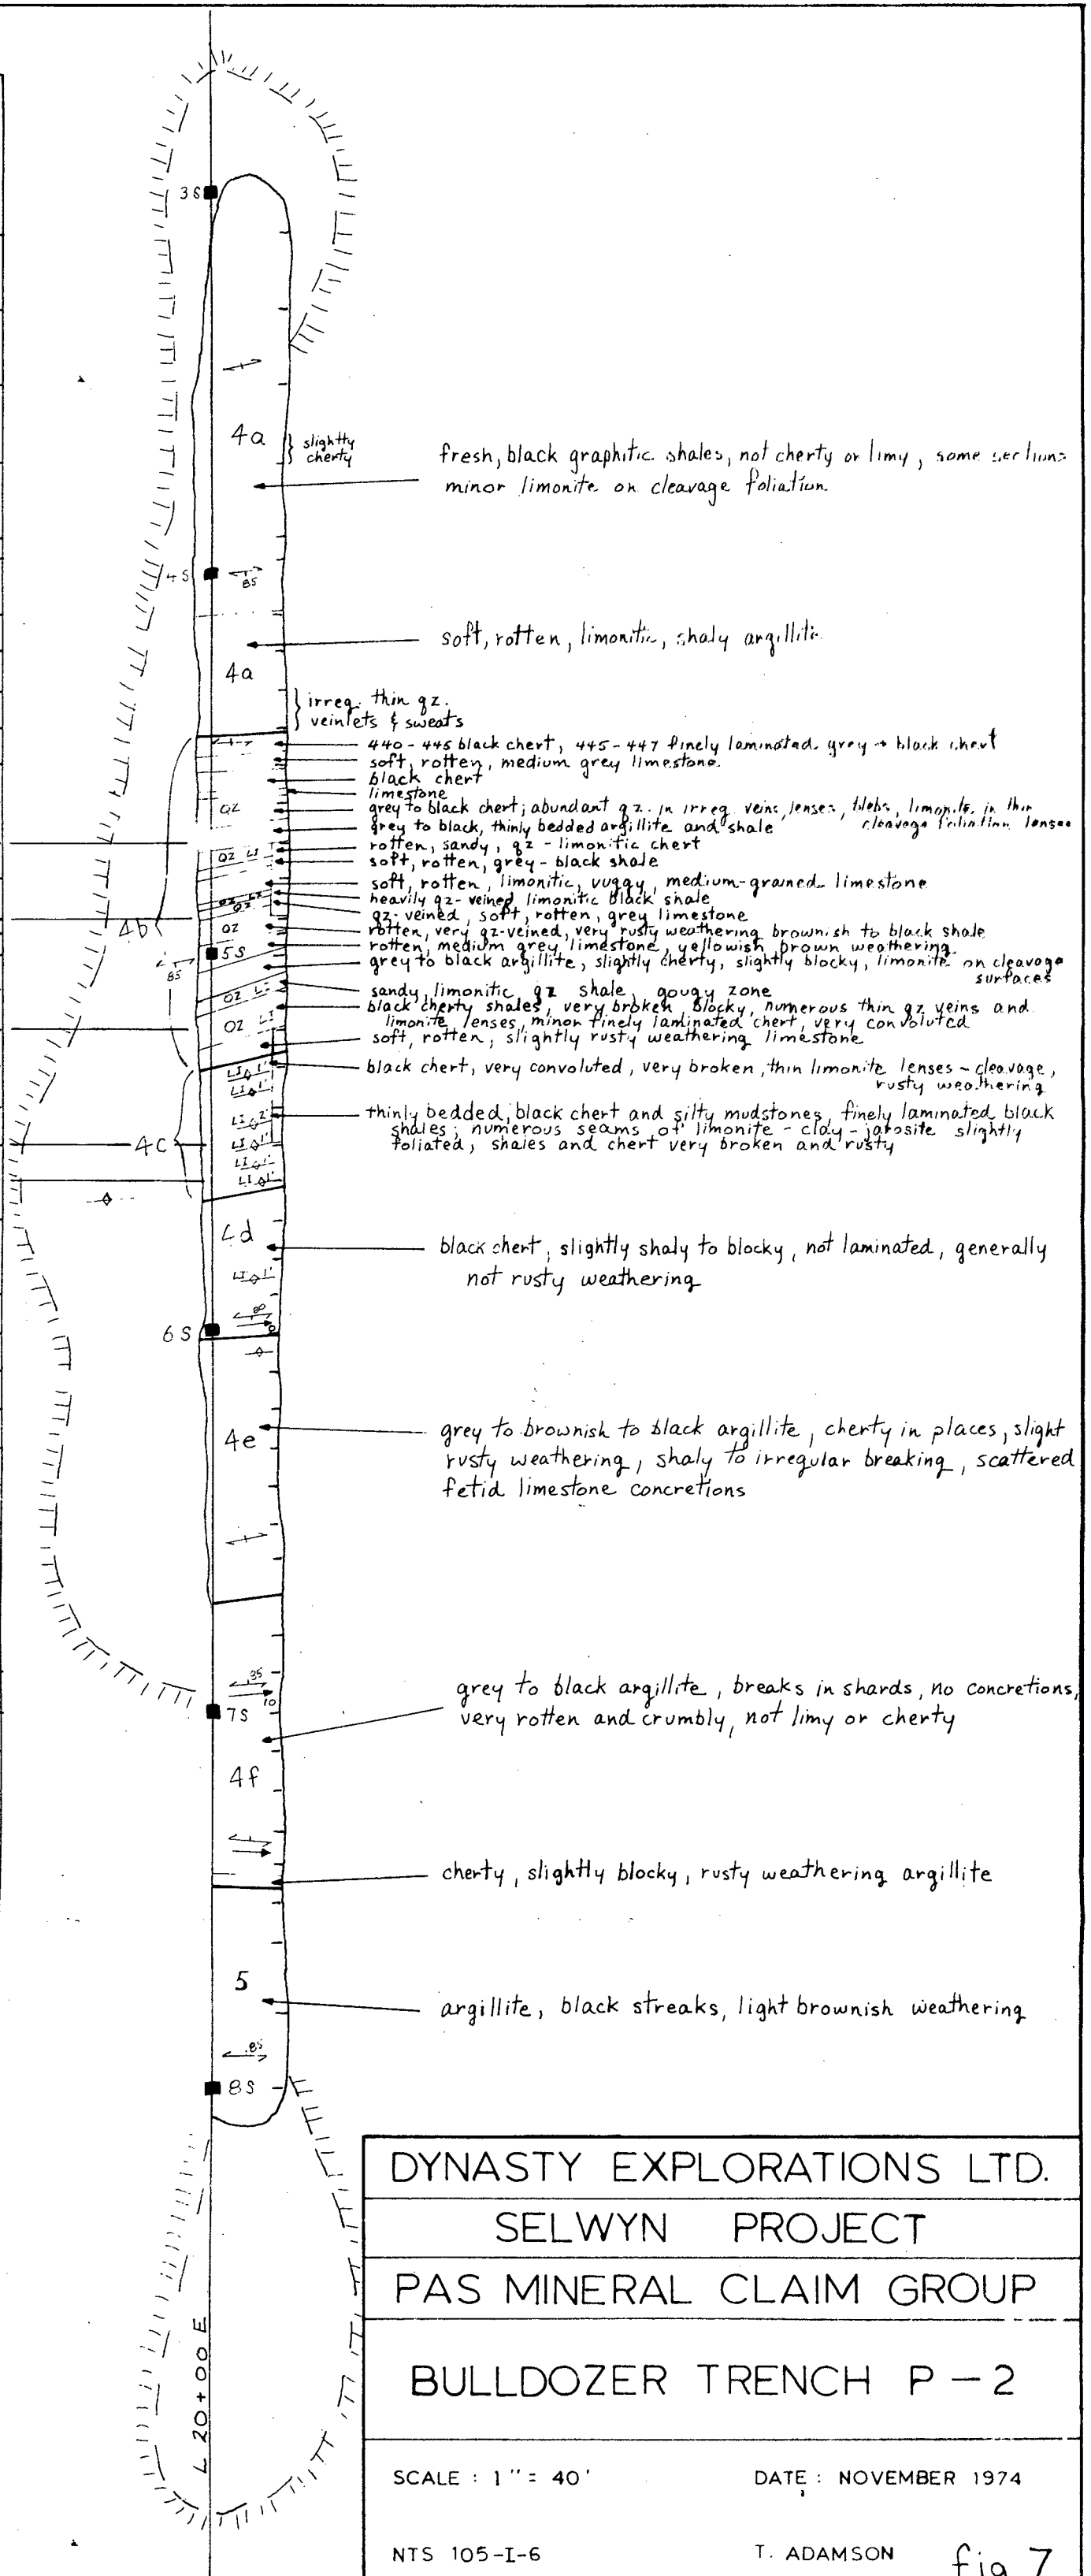 3S
4a
slightly
cherty
fresh, black graphitic shales, not cherty or limy, some sections
minor limonite on cleavage foliation
4S
85
soft, rotten, limonitic, shaly argillite
4a
irreg. thin qz.
veinlets & sweats
440 - 445 black chert, 445 - 447 finely laminated grey → black chert
soft, rotten, medium grey limestone
black chert
limestone
QZ
grey to black chert; abundant qz. in irreg. veins, lenses, blebs, limonite in thin
cleavage foliation lenses
grey to black, thinly bedded argillite and shale
rotten, sandy, qz - limonitic chert
QZ LI
soft, rotten, grey - black shale
soft, rotten, limonitic, vuggy, medium-grained limestone
heavily qz-veined limonitic black shale
qz-veined, soft, rotten, grey limestone
4b
QZ
rotten, very qz-veined, very rusty weathering brownish to black shale
5S
rotten, medium grey limestone, yellowish brown weathering
85
grey to black argillite, slightly cherty, slightly blocky, limonite on cleavage
surfaces
QZ LI
sandy, limonitic qz shale, gougy zone
black cherty shales, very broken blocky, numerous thin qz veins and
QZ LI
limonite lenses, minor finely laminated chert, very convoluted
soft, rotten, slightly rusty weathering limestone
black chert, very convoluted, very broken, thin limonite lenses - cleavage,
rusty weathering
thinly bedded, black chert and silty mudstones, finely laminated black
shales; numerous seams of limonite - clay - jarosite slightly
4c
foliated, shales and chert very broken and rusty
4d
black chert, slightly shaly to blocky, not laminated, generally
not rusty weathering
80
6S
4e
grey to brownish to black argillite, cherty in places, slight
rusty weathering, shaly to irregular breaking, scattered
fetid limestone concretions
35
10
7S
grey to black argillite, breaks in shards, no concretions,
very rotten and crumbly, not limy or cherty
4f
cherty, slightly blocky, rusty weathering argillite
5
argillite, black streaks, light brownish weathering
85
8S
L 20+00 E
DYNASTY EXPLORATIONS LTD.
SELWYN PROJECT
PAS MINERAL CLAIM GROUP
BULLDOZER TRENCH P - 2
SCALE : 1" = 40'
DATE : NOVEMBER 1974
NTS 105-I-6
T. ADAMSON
fig 7